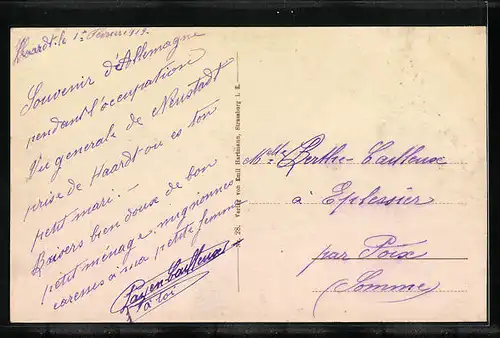 Haardt le 1er Février 1919
Souvenir d'Allemagne
pendant l'occupation
Vu generale de Neustadt
prise de Haardt ou es ton
petit mari. -
Baisers bien douse de bon
petit ménage. mignionnes
caresses à ma petite femme
Payen-Cailleux
à toi
28. Verlag von Emil Hartmann, Strassburg i. E.
Melle Berthe Cailleux
à Eplessier
par Poix
(Somme)